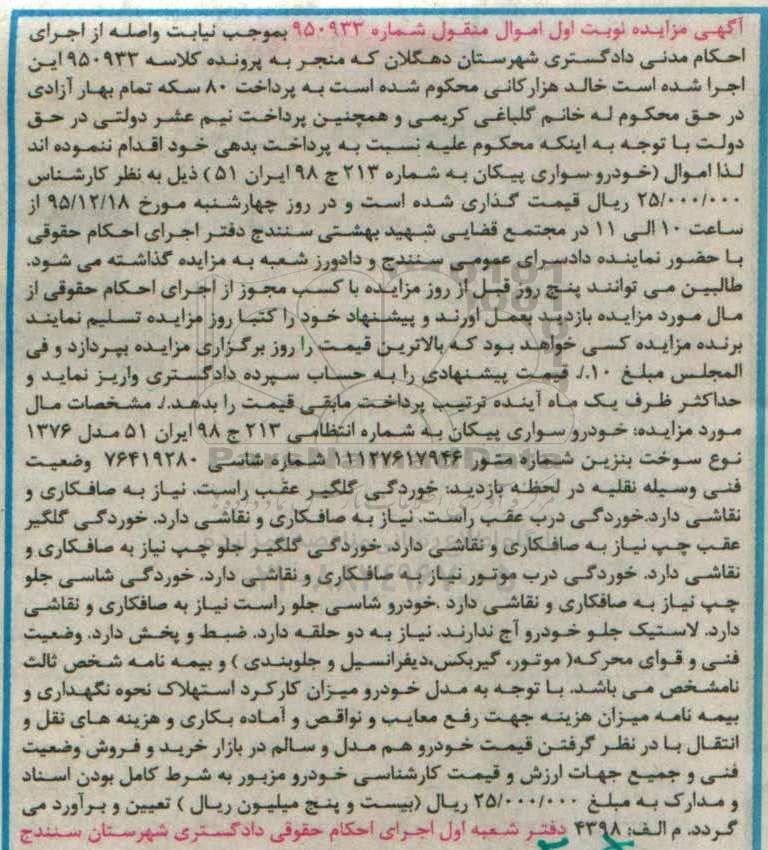 آگهی مزایده نوبت اول اموال منقول شماره ۹۵۰۹۳۳ بموجب نیابت واصله از اجرای
احکام مدنی دادگستری شهرستان دهگلان که منجر به پرونده کلاسه ۹۵۰۹۳۳ این
اجرا شده است خالد هزارکانی محکوم شده است به پرداخت ۸۰ سکه تمام بهار آزادی
در حق محکوم له خانم گلباغی کریمی و همچنین پرداخت نیم عشر دولتی در حق
دولت با توجه به اینکه محکوم علیه نسبت به پرداخت بدهی خود اقدام ننموده اند
لذا اموال (خودرو سواری پیکان به شماره ۲۱۳ ج ۹۸ ایران ۵۱) ذیل به نظر کارشناس
۲۵/۰۰۰/۰۰۰ ریال قیمت گذاری شده است و در روز چهارشنبه مورخ ۹۵/۱۲/۱۸ از
ساعت ۱۰ الی ۱۱ در مجتمع قضایی شهید بهشتی سنندج دفتر اجرای احکام حقوقی
با حضور نماینده دادسرای عمومی سنندج و دادورز شعبه به مزایده گذاشته می شود.
طالبین می توانند پنج روز قبل از روز مزایده با کسب مجوز از اجرای احکام حقوقی از
مال مورد مزایده بازدید بعمل آورند و پیشنهاد خود را کتبا روز مزایده تسلیم نمایند
برنده مزایده کسی خواهد بود که بالاترین قیمت را روز برگزاری مزایده بپردازد و فی
المجلس مبلغ ۱۰٪ قیمت پیشنهادی را به حساب سپرده دادگستری واریز نماید و
حداکثر ظرف یک ماه آینده ترتیب پرداخت مابقی قیمت را بدهد./. مشخصات مال
مورد مزایده: خودرو سواری پیکان به شماره انتظامی ۲۱۳ ج ۹۸ ایران ۵۱ مدل ۱۳۷۶
نوع سوخت بنزین شماره متور ۱۱۱۲۷۶۱۷۹۴۶ شماره شاسی ۷۶۴۱۹۲۸۰ وضعیت
فنی وسیله نقلیه در لحظه بازدید: خوردگی گلگیر عقب راست. نیاز به صافکاری و
نقاشی دارد.خوردگی درب عقب راست. نیاز به صافکاری و نقاشی دارد. خوردگی گلگیر
عقب چپ نیاز به صافکاری و نقاشی دارد. خوردگی گلگیر جلو چپ نیاز به صافکاری و
نقاشی دارد. خوردگی درب موتور نیاز به صافکاری و نقاشی دارد. خوردگی شاسی جلو
چپ نیاز به صافکاری و نقاشی دارد .خودرو شاسی جلو راست نیاز به صافکاری و نقاشی
دارد. لاستیک جلو خودرو آج ندارند. نیاز به دو حلقه دارد. ضبط و پخش دارد. وضعیت
فنی و قوای محرکه( موتور، گیربکس،دیفرانسیل و جلوبندی ) و بیمه نامه شخص ثالث
نامشخص می باشد. با توجه به مدل خودرو میزان کارکرد استهلاک نحوه نگهداری و
بیمه نامه میزان هزینه جهت رفع معایب و نواقص و آماده بکاری و هزینه های نقل و
انتقال با در نظر گرفتن قیمت خودرو هم مدل و سالم در بازار خرید و فروش وضعیت
فنی و جمیع جهات ارزش و قیمت کارشناسی خودرو مزبور به شرط کامل بودن اسناد
و مدارک به مبلغ ۲۵/۰۰۰/۰۰۰ ریال (بیست و پنج میلیون ریال ) تعیین و برآورد می
گردد. م الف: ۴۳۹۸ دفتر شعبه اول اجرای احکام حقوقی دادگستری شهرستان سنندج
ParsNamadData